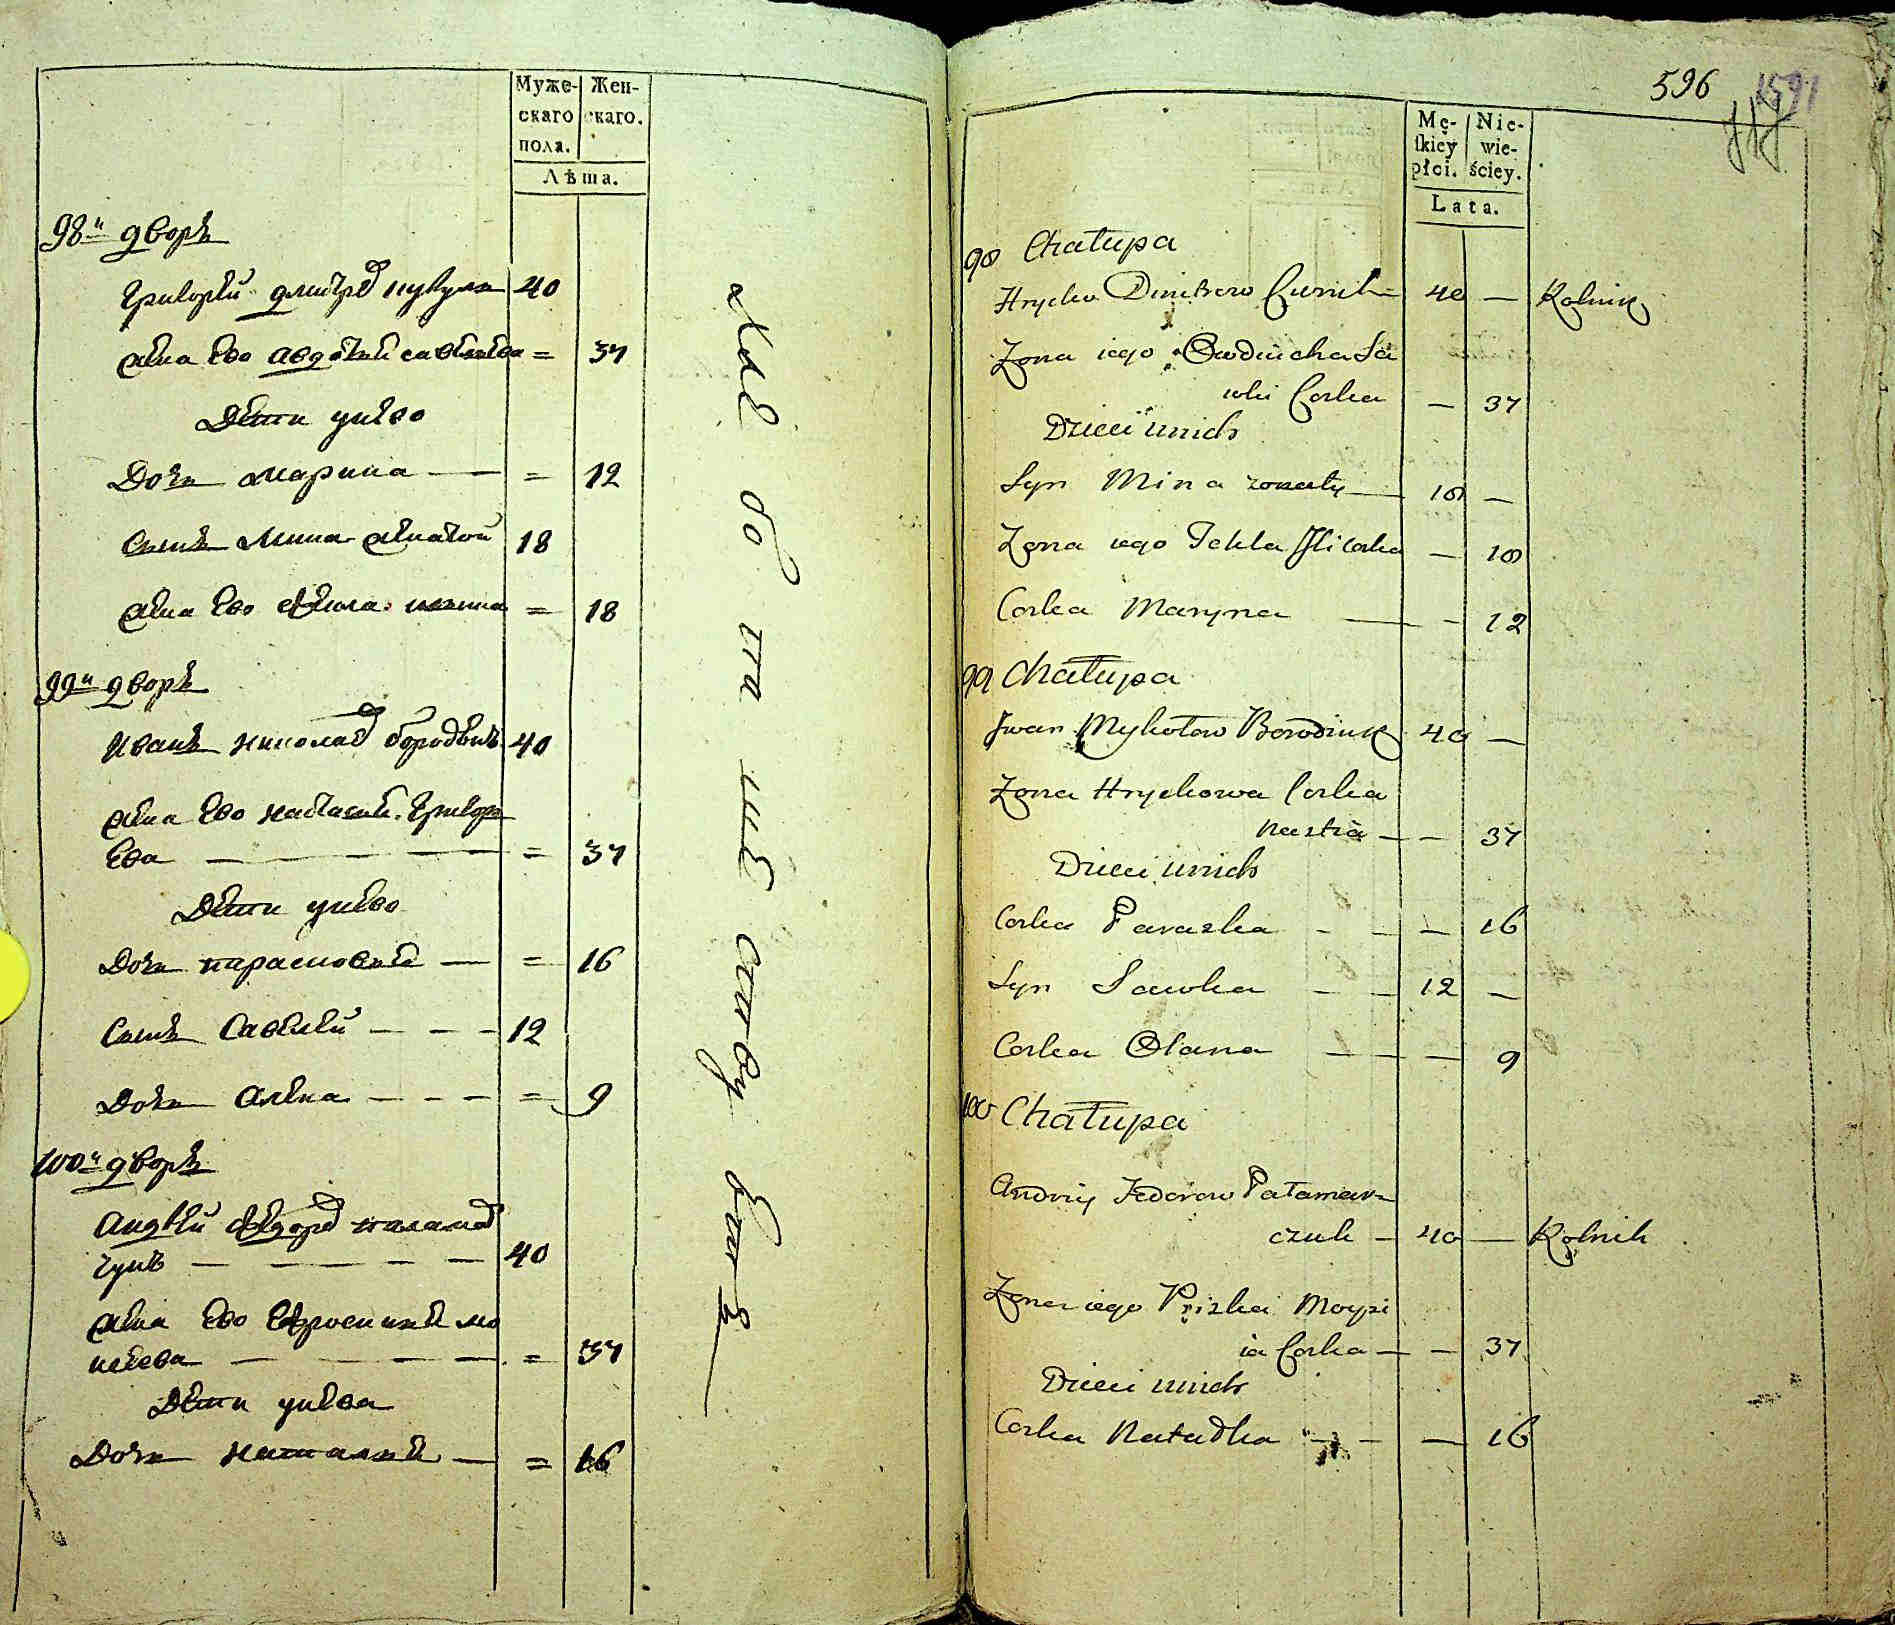 Муже-
скаго
пола.
Жен-
скаго.
Лѣта.
98й дворъ
Григорѣй дмитрѣв 40
жена Ево авдотѣя = 37
Дѣти унево
Дочь марина — = 12
Сынъ мина женатой 18
жена Ево Фекла = 18
99й дворъ
Иванъ николаев 40
жена Ево настасия Григорь
Ева — — — — = 37
Дѣти унево
Дочь парасковѣя — = 16
Сынъ Савелѣй — — — 12
Дочь алена — — — = 9
100й дворъ
андрѣй Федоров паламар
чукъ — — — — — 40
жена Ево Ефросинья мо
исеева — — — — = 37
Дѣти унева
Дочь наталья — = 16
596 591
Mę-
ſkiey
płci.
Nie-
wie-
ściey.
Lata.
98 Chałupa
Hrycko Dmitrow 40 — Rolnik
Zona iego Owduicha Sa
wki Corka — 37
Dzieci unich
Syn Mina zonaty — 18 —
Zona iego Tekla Jli Corka — 18
Corka Maryna — — 12
99 Chałupa
Jwan Mykołow Borodiuk 40 —
Zona Hryckowa Corka
Nastia — — 37
Dzieci unich
Corka Paraska - — — 16
Syn Sawka — — 12 —
Corka Olana — — — 9
100 Chałupa
Andrij Fedorow Pałamar=
czuk — 40 — Rolnik
Zona iego Priska Moysi
ia Corka — — 37
Dzieci unich
Corka Natałka - - - — 16